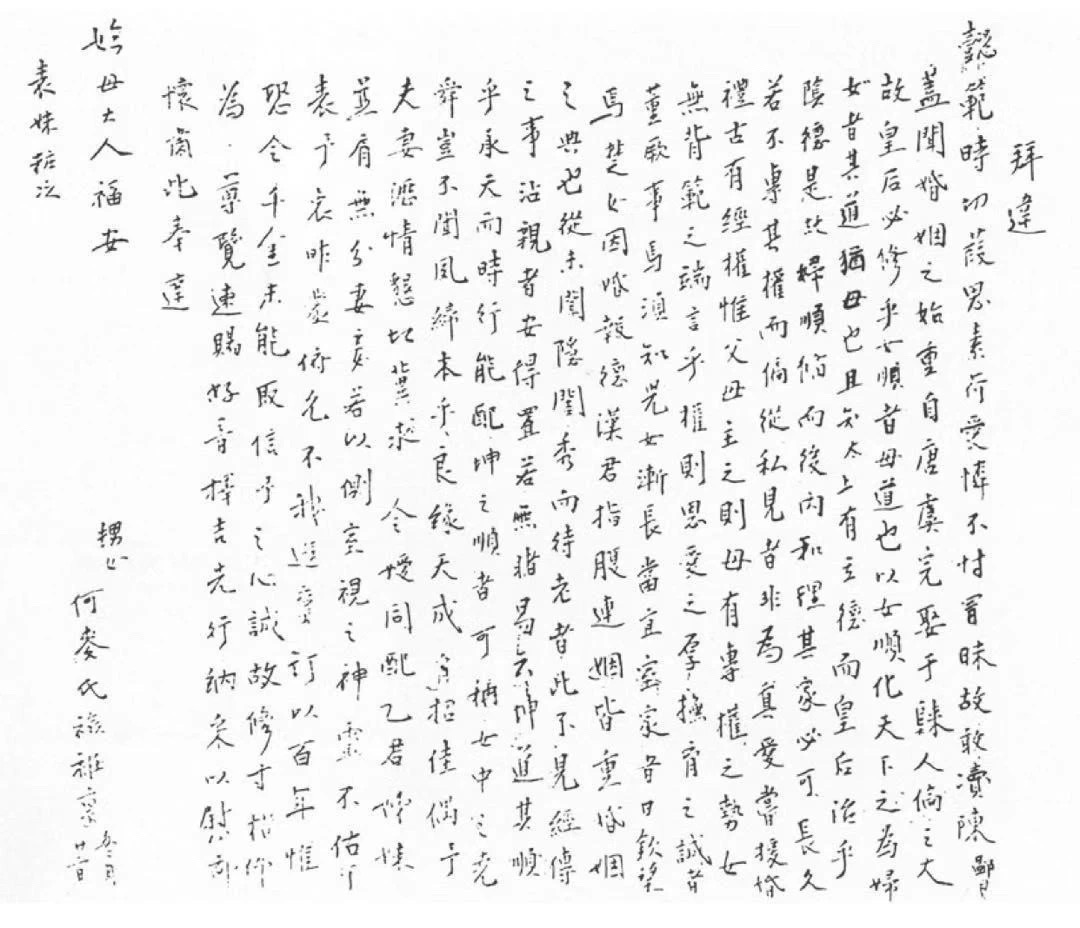 拜違
懿範時切葭思素荷愛憐不忖冒昧故敢瀆陳鄙
蓋聞婚姻之始重自唐虞完娶于隸人倫之大
故皇后必修乎女順者母道也以女順化天下之為婦
女者其道猶母也且知太上有立德而皇后治乎
陰德是故婦順備而後內和理其家必可長久
若不專其權而偏從私見者非為真愛嘗援婚
禮古有經權惟父母主之則母有專權之勢女
無背範之端言乎權則思愛之厚撫育之誠者
董厥事焉須知兒女漸長當宜室家昔日欽望
焉楚女因婚報德漢君指腹連姻皆重婚姻
之典也從未聞隱閨秀而待老者此不見經傳
之事沾親者安得置若無睹易云坤道其順
乎承天而時行能配坤之順者可稱女中之堯
舜豈不聞夙締本乎良緣天成招佳偶予
夫妻瀝情懇切冀求 令嬡同配乙君姊妹
並肩無分妻妾若以側室視之神靈不佑
表予衷昨歲俯允不我遐棄訂以百年惟
恐令千金未能取信予之心誠故修寸楮仰
為 尊覽速賜好音擇吉先行納采以慰
懷耑此奉達
妗母大人福安
表妹粧次
甥
何麥氏